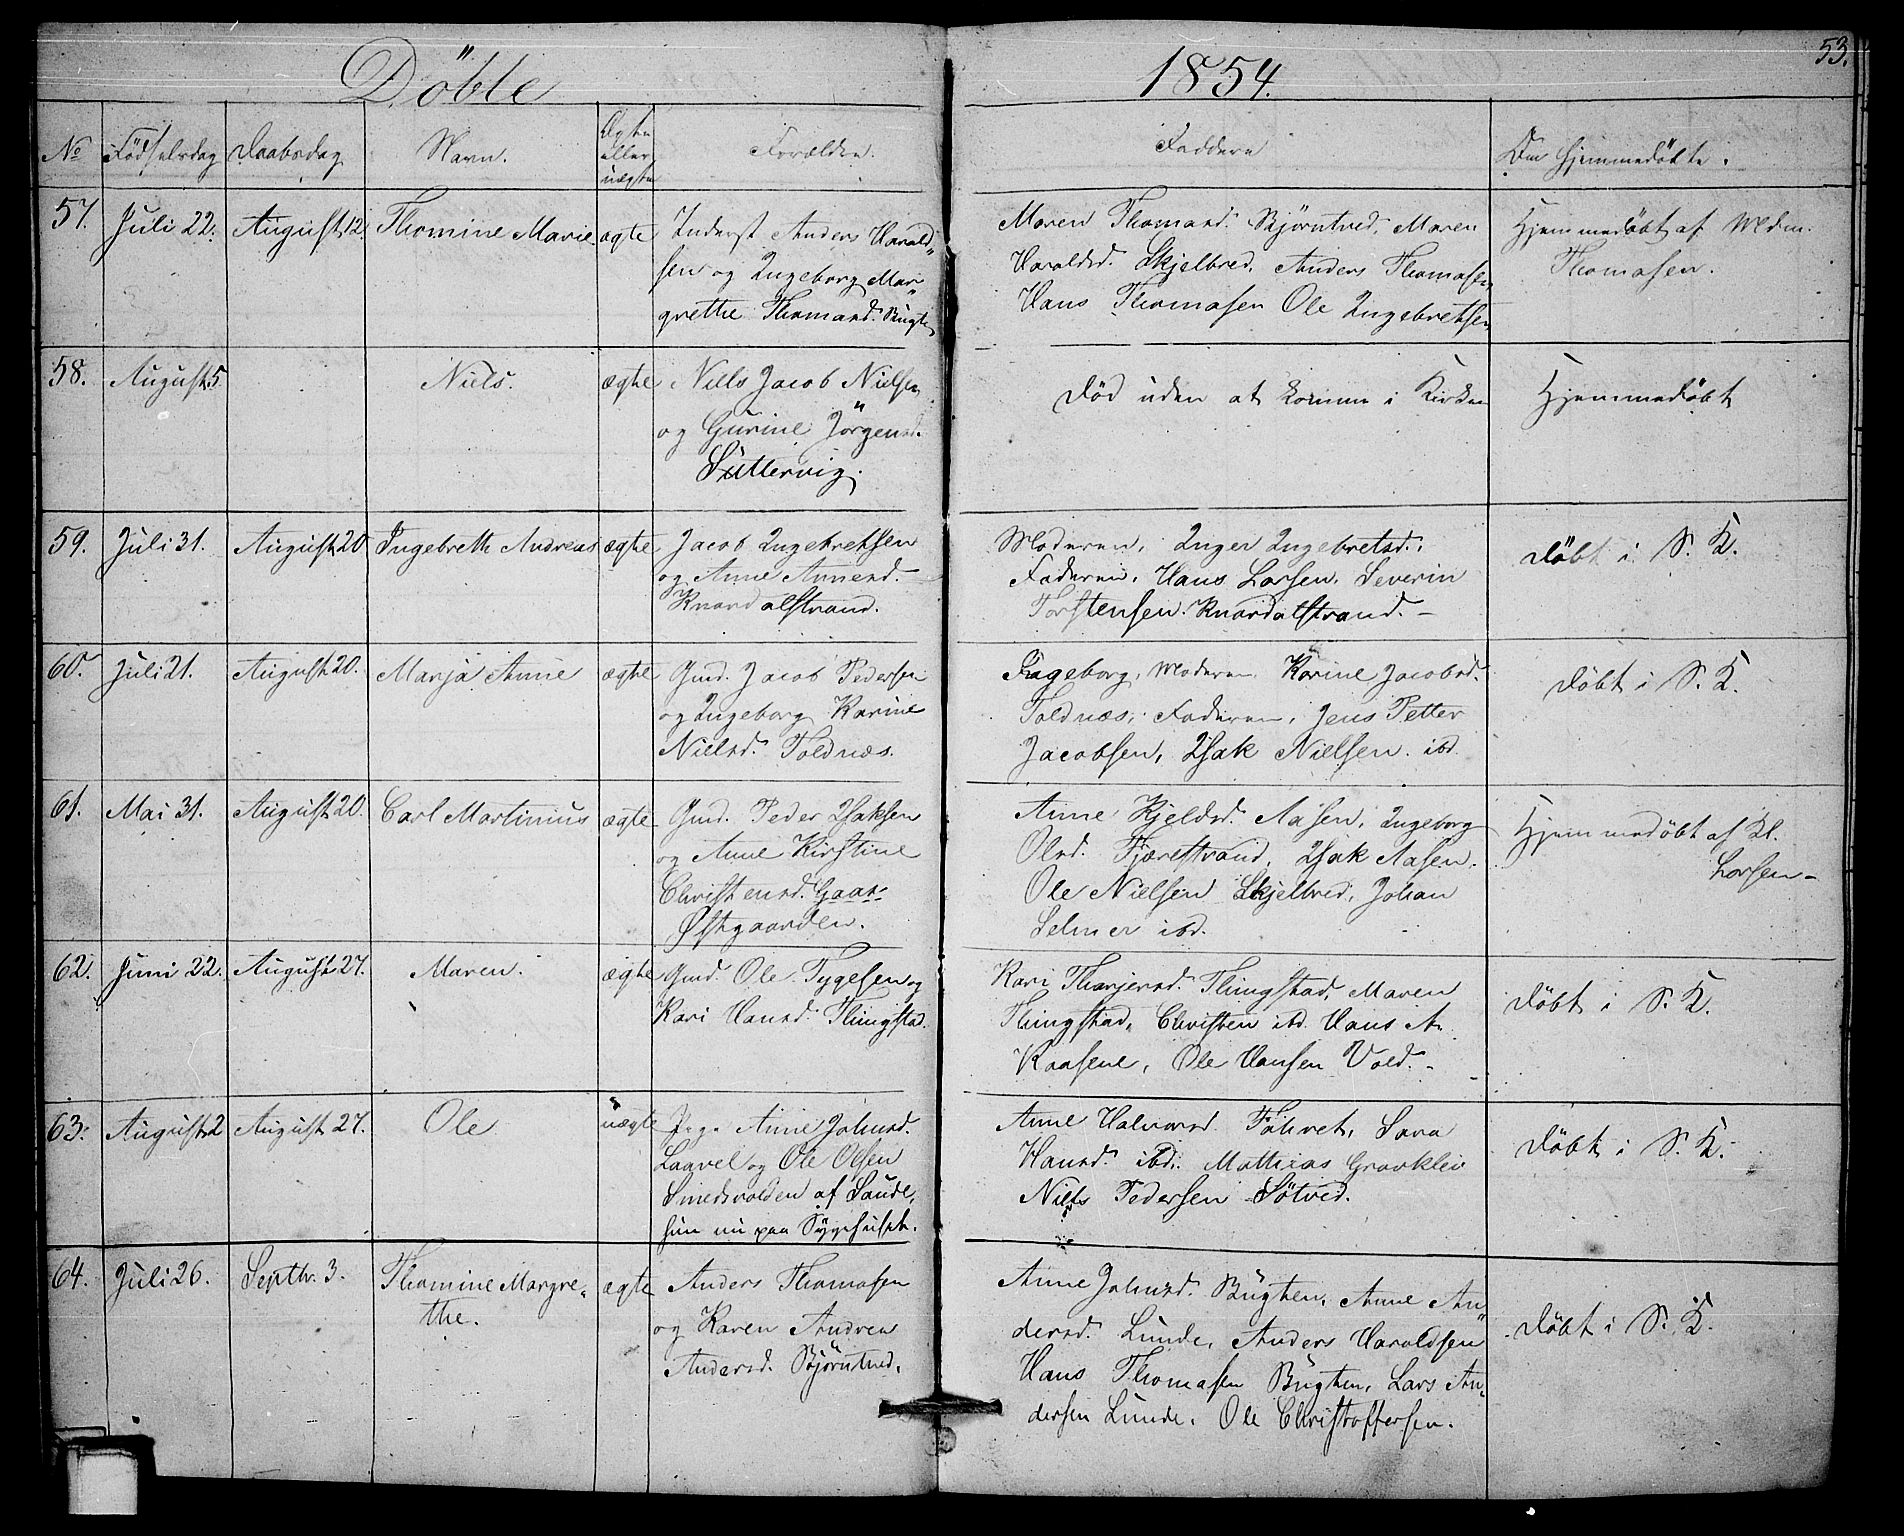 Döbte 1854. 53.
No Födselsdag Daabsdag Navn. Ægte eller uægte Forældre. Faddere Om hjemmedöbte.
57. Juli 22. August 12. Thomine Marie ægte Inderst Anders Harald-
sen og Ingeborg Mar-
grethe Thomasd. Bugten
Maren Thomasd. Bjørntved, Maren
Haraldsd. Skjelbred, Anders Thomasen,
Hans Thomasen Ole Ingebretsen
Hjemmedöbt af Mdm.
Thomasen.
58. August 5. Niels. ægte Niels Jacob Nielsen
og Gurine Jörgensd.
Süttervig.
Död uden at komme i Kirken
Hjemmedöbt
59. Juli 31. August 20 Ingebreth Andreas ægte Jacob Ingebretsen
og Anne Annesd.
Knardalstrand.
Moderen, Inger Ingebretsd.,
Faderen, Hans Larsen, Severin
Torstensen. Knardalstrand. –
Döbt i S. K.
60. Juli 21. August 20. Marja Anne ægte Gmd. Jacob Pedersen
og Ingeborg Karine
Nielsd. Toldnæs.
Ingeborg, Moderen, Karine Jacobsd.
Toldnæs, Faderen, Jens Petter
Jacobsen, Isak Nielsen ibd.
Döbt i S. K.
61. Mai 31. August 20. Carl Martinius ægte Gmd. Peder Isaksen
og Anne Kirstine
Christensd. Gaas-
Østgaarden.
Anne Kjeldsd. Aasen, Ingeborg
Olsd. Fjærestrand, Isak Aasen.
Ole Nielsen Skjelbred, Johan
Selmer ibd.
Hjemmedöbt af Kl.
Larsen –
62. Juni 22. August 27. Maren. ægte Gmd. Ole Tygesen og
Kari Hansd. Flingstad.
Kari Thorjersd. Flingstad, Maren
Flingstad, Christen ibd. Hans A.
Kaasene, Ole Hansen Vold. –
Döbt i S. K.
63. August 2 August 27. Ole uægte Pige Anne Johnsd.
Laavel og Ole Olsen
Smedsvolden af Saude,
hun nu paa Sygehuset.
Anne Halvorsd. Fölivet, Sara
Hansd. ibd. Mathias Gravklev
Niels Pedersen Sötved.
Döbt i S. K.
64. Juli 26. Septbr. 3. Thomine Margre-
the. ægte Anders Thomasen
og Karen Andrea
Andersd. Bjørntved.
Anne Johnsd. Bugten, Anne An-
dersd. Lunde, Anders Haraldsen
Hans Thomasen Bugten, Lars An-
dersen Lunde, Ole Christoffersen.
Döbt i S. K.